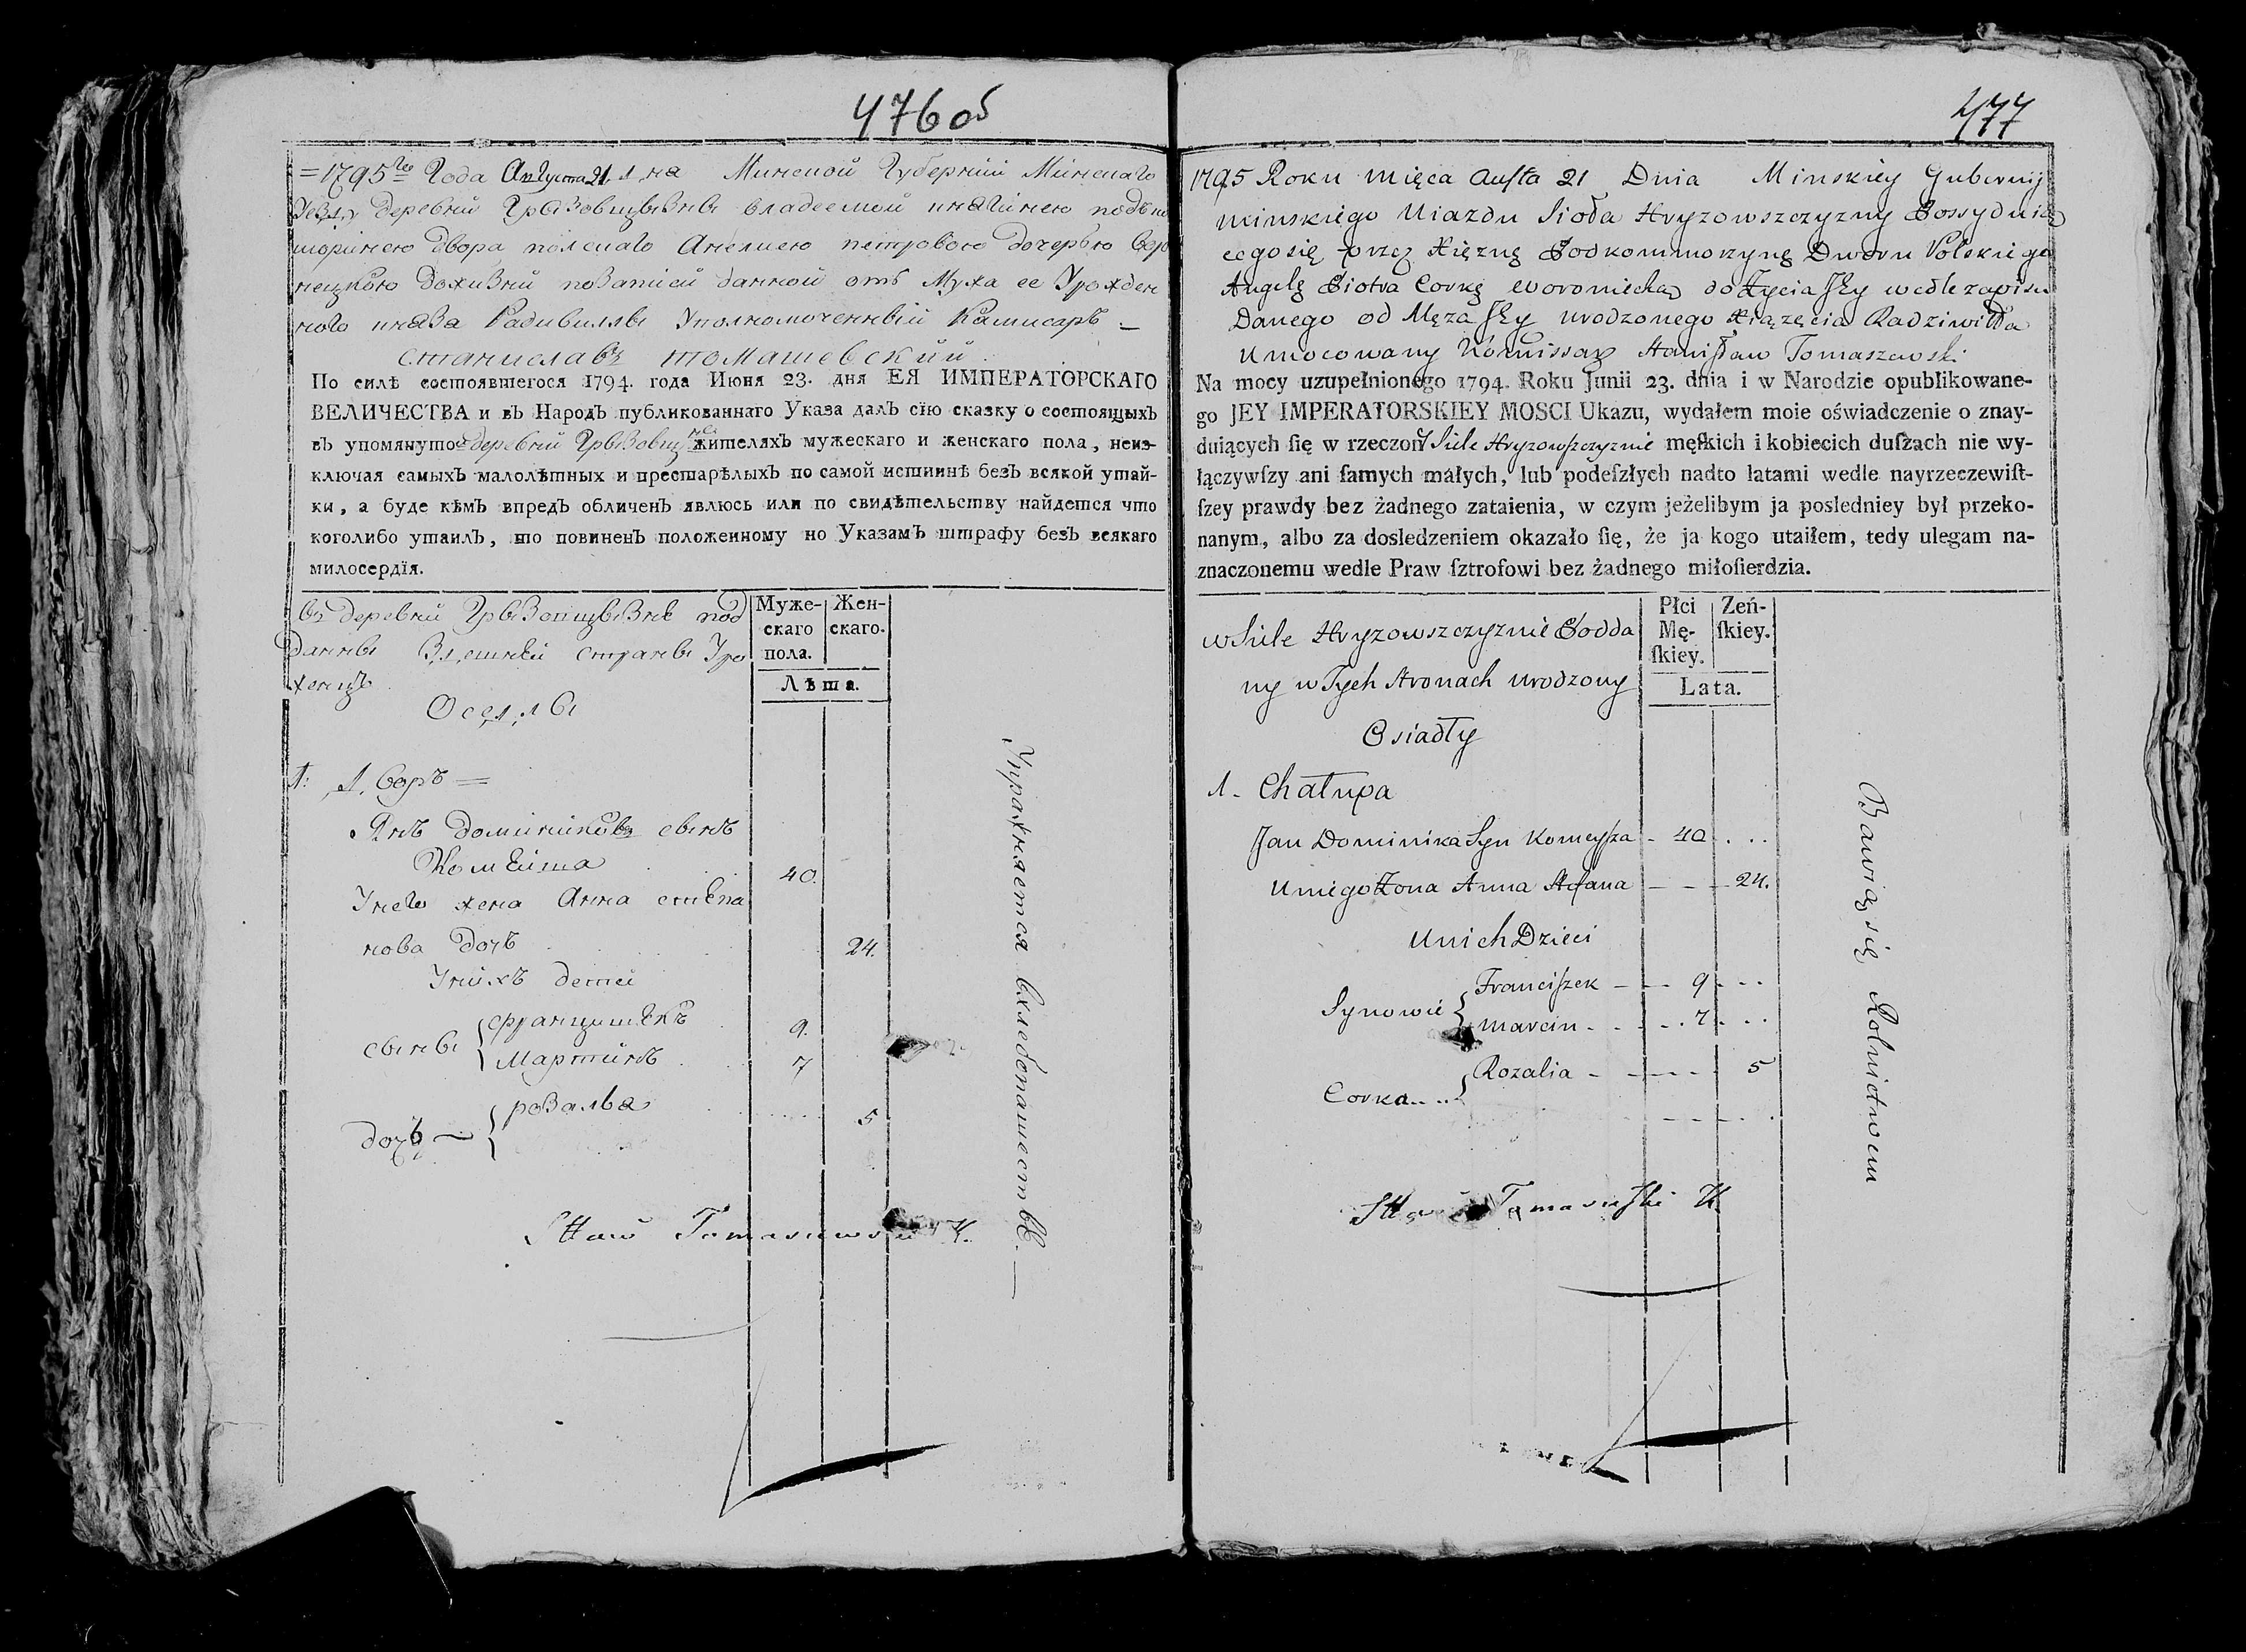 476 об
=1795го Года Августа 21 дня Минской Губернии Минскаго
Уезду деревни Грызовщызны владеемой княгинею подко
моринею двора полскаго Анелиею петровою дочерью Воро
нецкою дожизни позаписи данной отъ Мужа ее Урожден
ного князя Радивиллы Уполномоченный Камисаръ —
станиславъ томашевский.
По силѣ состоявшегося 1794. года Июня 23. дня ЕЯ ИМПЕРАТОРСКАГО
ВЕЛИЧЕСТВА и въ Народъ публикованнаго Указа далъ сїю сказку о состоящыхъ
въ упомянутой деревни Грызовщызне жителяхъ мужескаго и женскаго пола, неиз-
ключая самыхъ малолѣтныхъ и престарѣлыхъ по самой истиннѣ безъ всякой утай-
ки, а буде кѣмъ впредъ обличенъ явлюсь или по свидѣтельству найдется что
коголибо утаилъ, то повиненъ положенному по Указамъ штрафу безъ всякаго
милосердїя.
въ деревни Грызовщызне под
данны Здешней страны Уро
женцъ
Оседлы
Муже-
скаго
пола.
Жен-
скаго.
Лѣта.
1: Дворъ =
Янъ доминиковъ сынъ
Комейша 40.
Унего жена Анна степа
нова дочь 24.
Унихъ детей
сыны { францишекъ 9.
Мартинъ 7
дочь — { розалья 5
Sttaw Tomaszewski K.
Упражняется вхлебопашестве. —
477
1795 Roku Mięca Austa 21 Dnia Minskiey Gubernij
Minskiego Uiazdu Sioła Hryzowszczyzny Possyduią
cego się przez Xięznę Podkommorzynę Dworu Polskiego
Angelę Piotra Corkę Woroniecką do Życia Jey wedle zapisu
Danego od Męza Jey urodzonego Xiązęcia Radziwiłła
Umocowany Kommissarz Stanisław Tomaszewski
Na mocy uzupełnionego 1794. Roku Junii 23. dnia i w Narodzie opublikowane-
go JEY IMPERATORSKIEY MOSCI Ukazu, wydałem moie oświadczenie o znay-
duiących ſię w rzeczoney Siele Hryzowszczyznie męſkich i kobiecich duſzach nie wy-
łączywſzy ani ſamych małych, lub podeſzłych nadto latami wedle nayrzeczewiſt-
ſzey prawdy bez żadnego zataienia, w czym jeżelibym ja posledniey był przeko-
nanym, albo za dosledzeniem okazało ſię, że ja kogo utaiłem, tedy ulegam na-
znaczonemu wedle Praw ſztrofowi bez żadnego miłoſierdzia.
w Siele Hryzowszczyznie Podda
ny w Tych Stronach urodzony
Osiadły
Płci
Mę-
ſkiey.
Zeń-
ſkiey.
Lata.
1. Chałupa
Jan Dominika Syn Komeysza - 40. . .
U niego Żona Anna Stefana - - - 24.
U nich Dzieci
Synowie { Franciszek - - - 9. - -
Marcin - . . . . 7. . .
Corka.... { Rozalia - - - - - 5
Sttaw Tomaszewski K.
Bawią się Rolnictwem